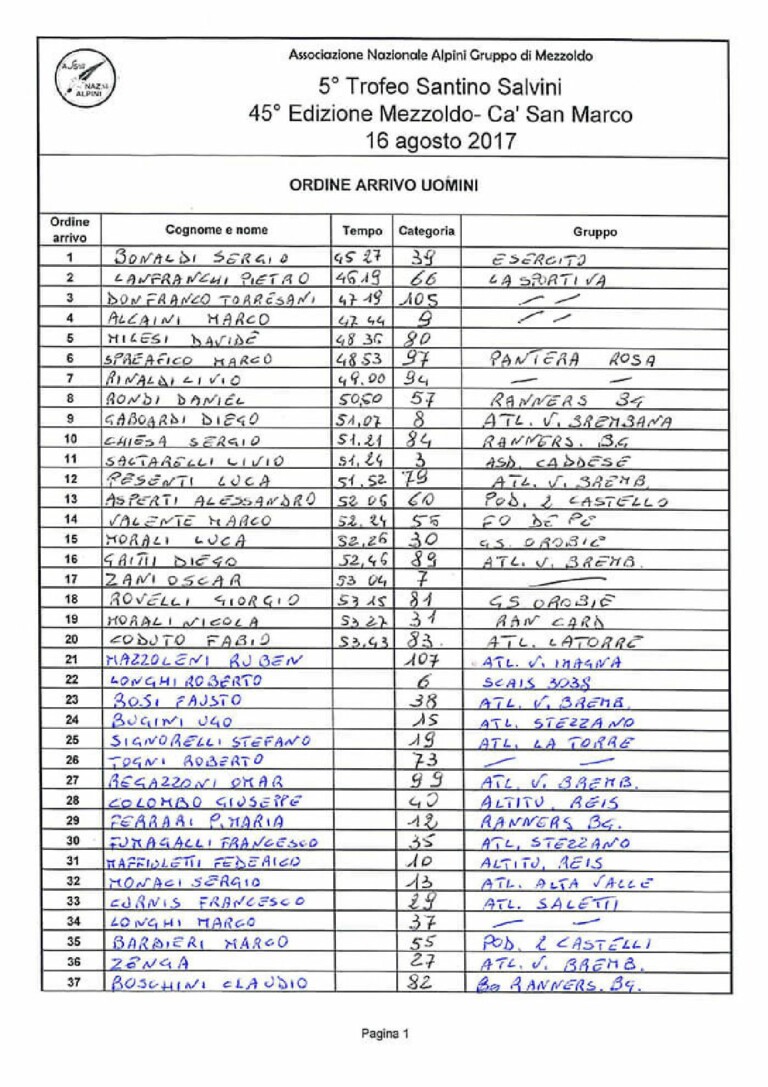 Associazione Nazionale Alpini Gruppo di Mezzoldo
NAZ.LE
ALPINI
5° Trofeo Santino Salvini
45° Edizione Mezzoldo- Ca' San Marco
16 agosto 2017
ORDINE ARRIVO UOMINI
Ordine arrivo Cognome e nome Tempo Categoria Gruppo
1 BONALDI SERGIO 45 27 39 ESERCITO
2 LANFRANCHI PIETRO 46 19 66 LA SPORTIVA
3 DON FRANCO TORRESANI 47 19 105 — —
4 ALCAINI MARCO 47 44 9 — —
5 MILESI DAVIDE 48 36 80
6 SPREAFICO MARCO 48 53 97 PANTERA ROSA
7 RINALDI LIVIO 49.00 94 — —
8 RONDI DANIEL 50,50 57 RANNERS BG
9 GABOARDI DIEGO 51,07 8 ATL. V. BREMBANA
10 CHIESA SERGIO 51.21 84 RANNERS. BG
11 SALTARELLI LIVIO 51,24 3 ASD. CADDESE
12 PESENTI LUCA 51.52 79 ATL. V. BREMB.
13 ASPERTI ALESSANDRO 52 06 60 POD. 2 CASTELLO
14 VALENTE MARCO 52.24 56 FO DE PE
15 MORALI LUCA 52,26 30 GS. OROBIE
16 GAITI DIEGO 52,46 89 ATL. V. BREMB.
17 ZANI OSCAR 53 04 7 —
18 ROVELLI GIORGIO 53 15 81 GS OROBIE
19 MORALI NICOLA 53 27 31 RAN CARD
20 CODUTO FABIO 53,43 83. ATL. LATORRE
21 MAZZOLENI RUBEN 107 ATL. V. IMAGNA
22 LONGHI ROBERTO 6 SCAIS 3038
23 BOSI FAUSTO 38 ATL. V. BREMB.
24 BUGINI UGO 15 ATL. STEZZANO
25 SIGNORELLI STEFANO 19 ATL. LA TORRE
26 TOGNI ROBERTO 73 — —
27 REGAZZONI OMAR 99 ATL. V. BREMB.
28 COLOMBO GIUSEPPE 40 ALTITU. REIS
29 FERRARI P. MARIA 12 RANNERS BG.
30 FUMAGALLI FRANCESCO 35 ATL, STEZZANO
31 MAFFIOLETTI FEDERICO 10 ALTITU, REIS
32 MONACI SERGIO 13 ATL. ALTA VALLE
33 CORNIS FRANCESCO 29 ATL. SALETTI
34 LONGHI MARCO 37 — —
35 BARBIERI MARCO 55 POD. 2 CASTELLI
36 ZENGA 27 ATL. V. BREMB.
37 BOSCHINI CLAUDIO 82 RANNERS. BG.
Pagina 1